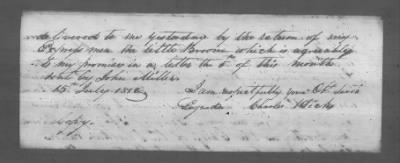 delivered to me yesterday by the return of my
Express man the little Broom which is agreeably
to my promise in a letter the 6th of this month
sent by John Miller.
15th July 18
I am respectfully your Obt. Servt
Charles Hicks
Copy.